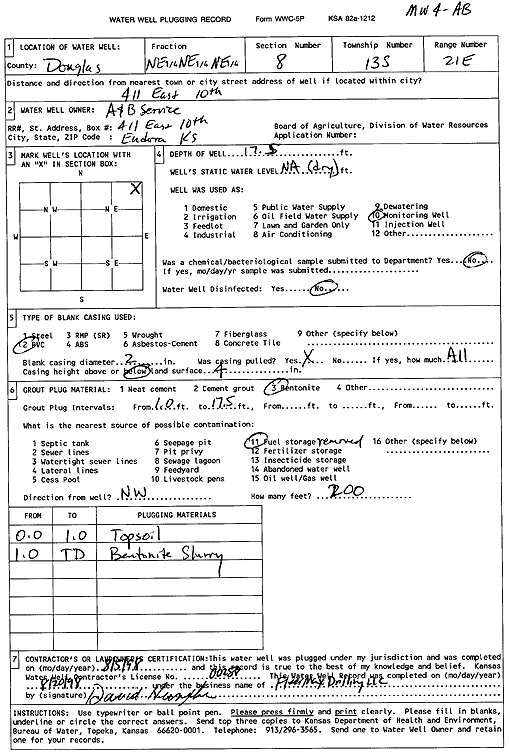 MW4-AB
WATER WELL PLUGGING RECORD Form WWC-5P KSA 82a-1212
1 LOCATION OF WATER WELL: Fraction Section Number Township Number Range Number
County: Douglas NE 1/4 NE 1/4 NE 1/4 8 13S 21E
Distance and direction from nearest town or city street address of well if located within city?
411 East 10th
2 WATER WELL OWNER: A+B Service
RR#, St. Address, Box #: 411 East 10th Board of Agriculture, Division of Water Resources
City, State, ZIP Code : Eudora KS Application Number:
3 MARK WELL'S LOCATION WITH AN "X" IN SECTION BOX:
N
X
N W N E
W E
S W S E
S
4 DEPTH OF WELL....17.5....ft.
WELL'S STATIC WATER LEVEL NA (dry) ft.
WELL WAS USED AS:
1 Domestic 5 Public Water Supply 9 Dewatering
2 Irrigation 6 Oil Field Water Supply 10 Monitoring Well
3 Feedlot 7 Lawn and Garden Only 11 Injection Well
4 Industrial 8 Air Conditioning 12 Other..........
Was a chemical/bacteriological sample submitted to Department? Yes...No...
If yes, mo/day/yr sample was submitted..............
Water Well Disinfected: Yes.....No....
5 TYPE OF BLANK CASING USED:
1 Steel 3 RMP (SR) 5 Wrought 7 Fiberglass 9 Other (specify below)
2 PVC 4 ABS 6 Asbestos-Cement 8 Concrete Tile
Blank casing diameter..2....in. Was casing pulled? Yes.X... No..... If yes, how much.All
Casing height above or below land surface...4.......in.
6 GROUT PLUG MATERIAL: 1 Neat cement 2 Cement grout 3 Bentonite 4 Other..........
Grout Plug Intervals: From.1.0.ft. to.17.5.ft., From......ft. to.....ft., From...... to......ft.
What is the nearest source of possible contamination:
1 Septic tank 6 Seepage pit 11 Fuel storage removed 16 Other (specify below)
2 Sewer lines 7 Pit privy 12 Fertilizer storage
3 Watertight sewer lines 8 Sewage lagoon 13 Insecticide storage
4 Lateral lines 9 Feedyard 14 Abandoned water well
5 Cess Pool 10 Livestock pens 15 Oil well/Gas well
Direction from well? NW How many feet? 200
FROM TO PLUGGING MATERIALS
0.0 1.0 Topsoil
1.0 TD Bentonite Slurry
7 CONTRACTOR'S OR LANDOWNER'S CERTIFICATION: This water well was plugged under my jurisdiction and was completed
on (mo/day/year) ........ and this record is true to the best of my knowledge and belief. Kansas
Water Well Contractor's License No. ........ This Water Well Record was completed on (mo/day/year)
........ under the business name of ........ Drilling LLC
by (signature) David
INSTRUCTIONS: Use typewriter or ball point pen. Please press firmly and print clearly. Please fill in blanks,
underline or circle the correct answers. Send top three copies to Kansas Department of Health and Environment,
Bureau of Water, Topeka, Kansas 66620-0001. Telephone: 913/296-3565. Send one to Water Well Owner and retain
one for your records.